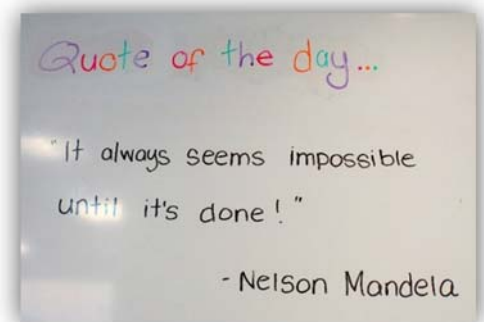 Quote of the day...
"It always seems impossible
until it's done!"
- Nelson Mandela